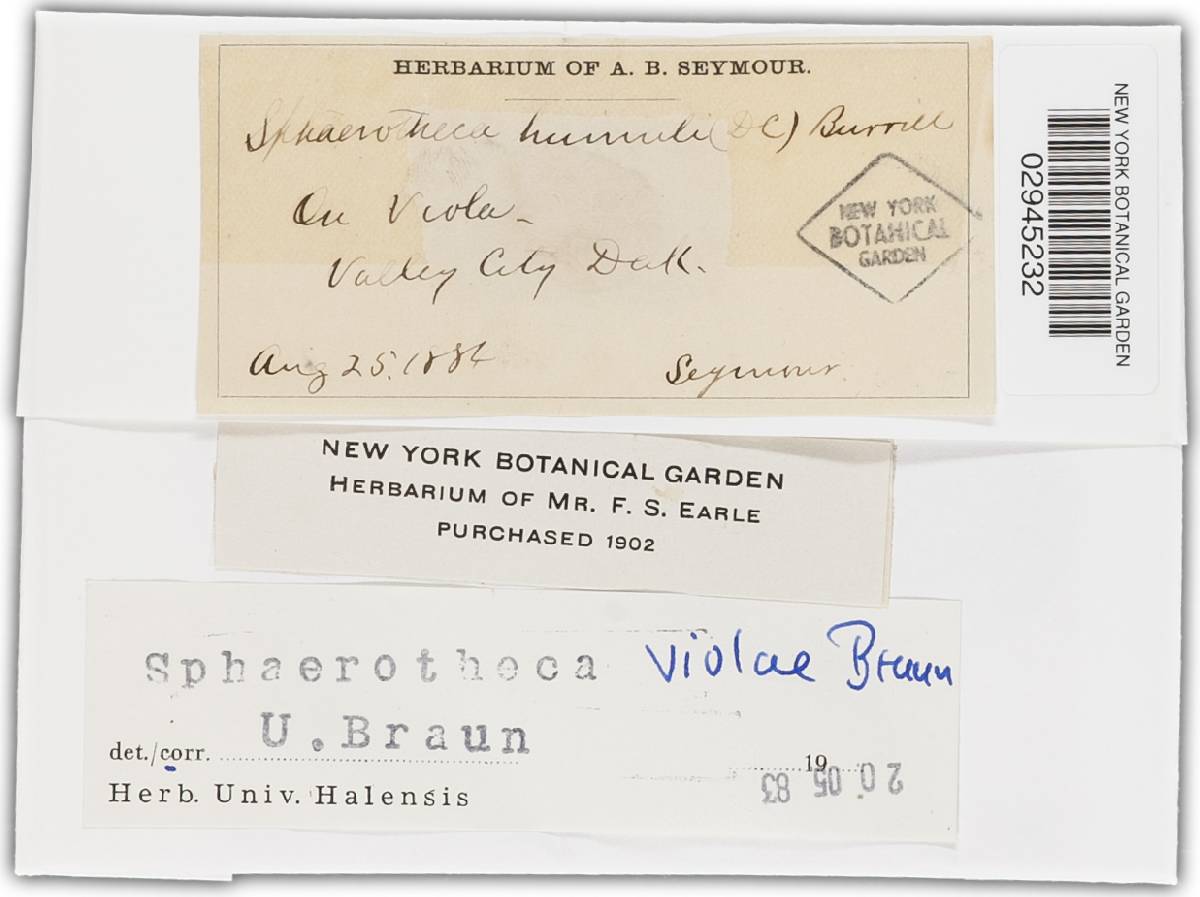 HERBARIUM OF A. B. SEYMOUR.
Sphaerotheca humuli (DC) Burrill
On Viola -
Valley City Dak.
Aug 25, 1884
Seymour.
NEW YORK
BOTANICAL
GARDEN
NEW YORK BOTANICAL GARDEN
02945232
NEW YORK BOTANICAL GARDEN
HERBARIUM OF MR. F. S. EARLE
PURCHASED 1902
Sphaerotheca violae Braun
det./corr. U.Braun 19
20 05 83
Herb. Univ. Halensis